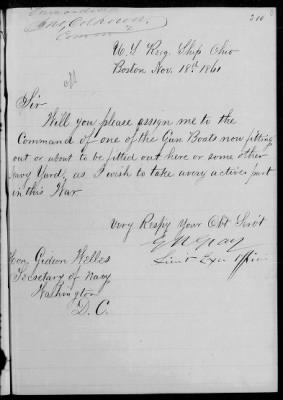 210
U.S. Recg. Ship Ohio
Boston Nov. 18th 1861
Sir
Will you please assign me to the
Command of one of the Gun Boats now fitting
out or about to be fitted out here or some other
Navy Yard, as I wish to take a very active part
in this War
Very Respy Your Obt Servt
Hon. Gideon Welles
Secretary of Navy
Washington
D.C.